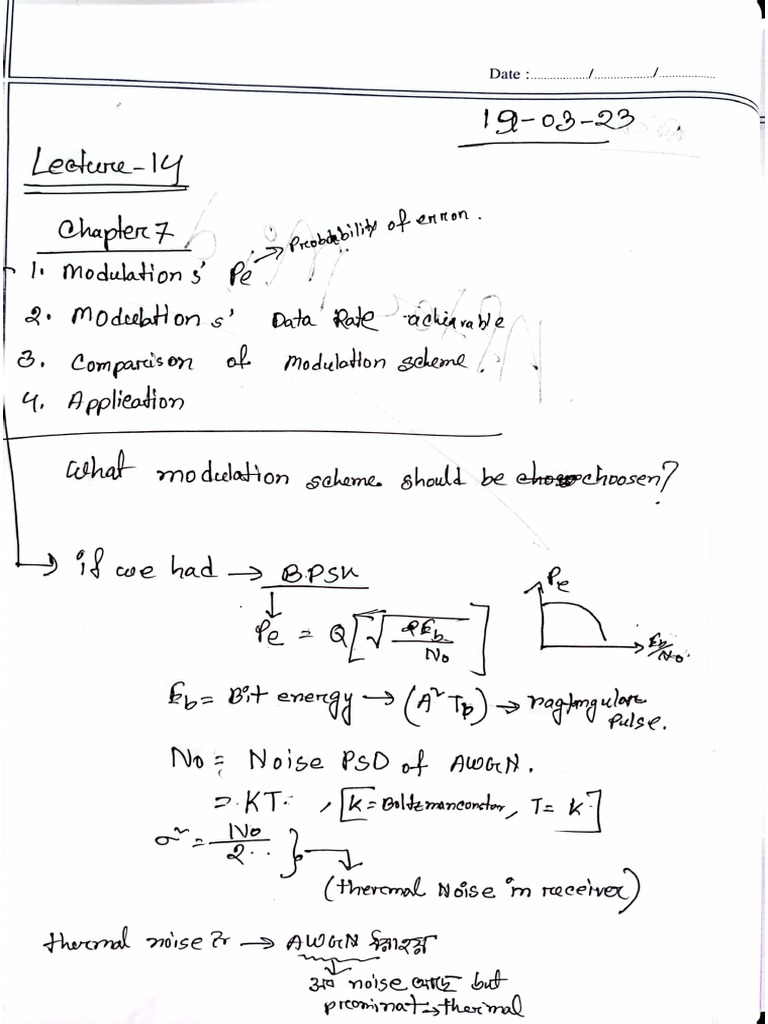 Date : ............../............../..............
19-03-23
Lecture-14
Chapter 7
1. Modulation s' Pe → Probability of error.
2. Modulation s' Data Rate achievable
3. Comparison of modulation scheme.
4. Application
What modulation scheme should be choosen?
→ if we had → BPSK
Pe = Q[√(2Eb/No)]
Pe
Eb/No
Eb = Bit energy → (A² Tb) → ragtangular pulse.
No = Noise PSD of AWGN.
= KT. , [k = Boltzmanconstor, T = K]
σ² = No/2
(thermal Noise in receiver)
thermal noise → AWGN
noise but
prominat → thermal